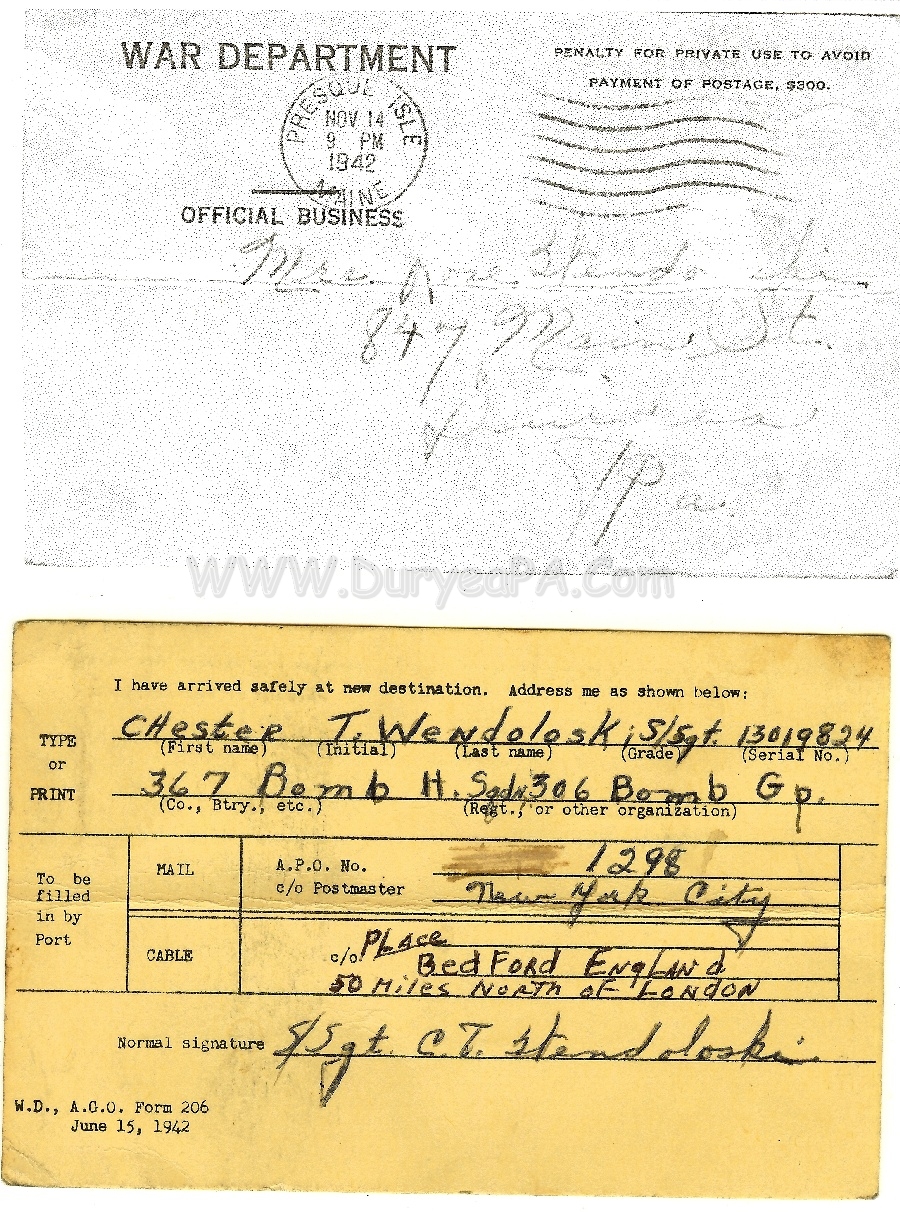 WAR DEPARTMENT
PENALTY FOR PRIVATE USE TO AVOID
PAYMENT OF POSTAGE, $300.
PRESQUE ISLE
NOV 14
9 PM
1942
MAINE
OFFICIAL BUSINESS
Mrs. Rose Wendoloski
847 Main St.
Duryea
Pa.
WWW.DuryeaPA.Com
I have arrived safely at new destination. Address me as shown below:
TYPE
or
PRINT
CHester T. Wendoloski S/Sgt. 13019824
(First name) (Initial) (Last name) (Grade) (Serial No.)
367 Bomb H. Sqdn 306 Bomb Gp.
(Co., Btry., etc.) (Regt., or other organization)
To be
filled
in by
Port
MAIL
A.P.O. No. 1298
c/o Postmaster New York City
CABLE
c/o PLace
BedFORD ENgLANd
50 Miles NORTH OF LONDON
Normal signature S/Sgt. C.T. Wendoloski
W.D., A.G.O. Form 206
June 15, 1942